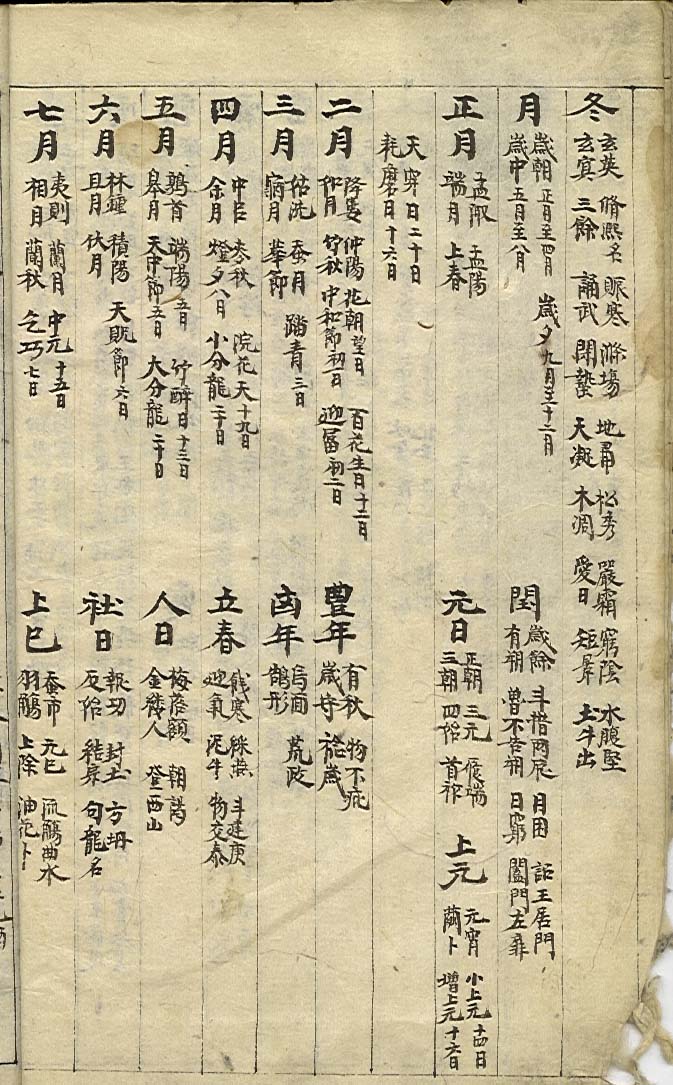 冬 玄英 脩熙名 賑寒 滌場 地鼎 松秀 嚴霜 窮陰 水腹堅
玄冥 三餘 誦武 閉蟄 天凝 木凋 愛日 短晷 土牛出
月 歲朝 正月至四月 歲夕 九月至十二月
歲中 五月至八月
閏 歲餘 斗指兩辰 月困 詔王居門
有朔 曾不告朔 日窮 闔門左扉
正月 孟陬 孟陽
端月 上春
元日 正朝 三元 履端
三朝 四始 首祚
上元 元宵 小上元 十四日
繭卜 增上元 十六日
天穿日 二十日
耗磨日 十六日
二月 降婁 仲陽 花朝 望日 百花生日 十二日
如月 竹秋 中和節 初一日 迎富 初二日
豊年 有秋 物不疵
歲守 穰歲
三月 姑洗 蚕月 踏青 三日
寎月 華節
凶年 鳥面 荒政
鵠形
四月 中呂 麥秋 浣花天 十九日
余月 燈夕 八月 小分龍 二十日
立春 餞寒 綵燕 斗建庚
迎氣 泥牛 物交泰
五月 鶉首 端陽 五日 竹醉日 十三日
皋月 天中節 五日 大分龍 二十日
人日 梅落額 朝謁
金縷人 登西山
六月 林鍾 積陽 天貺節 六日
且月 伏月
社日 報功 封土 方坍
反始 句龍名
七月 夷則 蘭月 中元 十五日
相月 蘭秋 乞巧 七日
上巳 蚕市 元巳 流觴曲水
羽觴 上除 油花卜